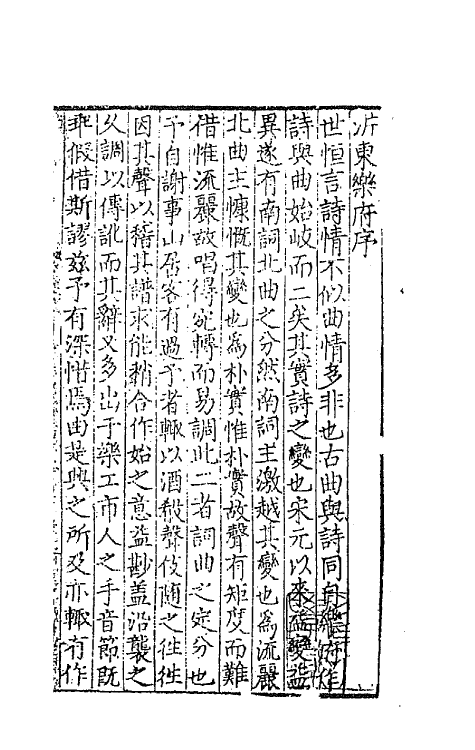 沜東樂府序
世恒言詩情不似曲情多非也古曲與詩同自樂府作
詩與曲始岐而二矣其實詩之變也宋元以來益變益
異遂有南詞北曲之分然南詞主激越其變也為流麗
北曲主慷慨其變也為朴實惟朴實故聲有矩度而難
借惟流麗故唱得宛轉而易調此二者詞曲之定分也
予自謝事山居客有過予者輒以酒殽聲伎隨之往往
因其聲以稽其譜求能稍合作始之意益尠盖沿襲之
久調以傳訛而其辭又多出于樂工市人之手音節既
乖假借斯謬兹予有深惜焉由是興之所及亦輒有作